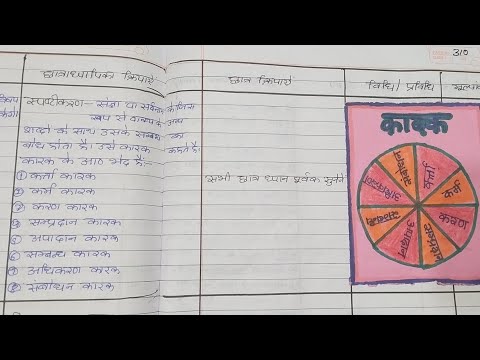 310
छात्राध्यापिका क्रियाएँ
छात्र क्रियाएँ
विधि/प्रविधि
स्पष्टीकरण- संज्ञा या सर्वनाम के जिस
रूप से वाक्य के अन्य
शब्दों के साथ उसके सम्बन्ध का
बोध होता है। उसे कारक कहते हैं।
कारक के आठ भेद हैं:-
① कर्ता कारक
② कर्म कारक
③ करण कारक
④ सम्प्रदान कारक
⑤ अपादान कारक
⑥ सम्बन्ध कारक
⑦ अधिकरण कारक
⑧ संबोधन कारक
सभी छात्र ध्यान पूर्वक सुनेंगे
कारक
संबोधन
कर्ता
कर्म
करण
सम्प्रदान
अपादान
सम्बन्ध
अधिकरण